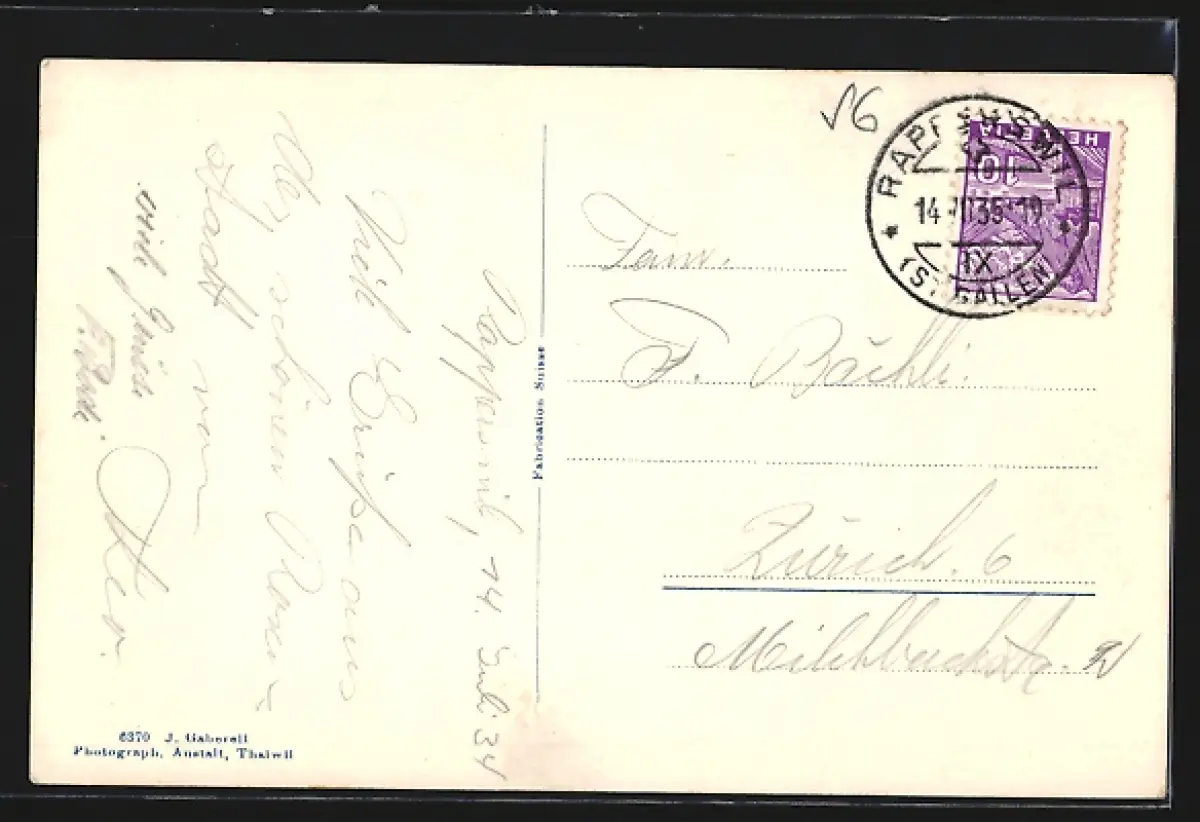 Rapperswil, 14. Juli 34
Viele Grüsse aus
der schönen Rosen-
stadt
von
56
Fam.
F. Bächli.
Zürich. 6
Milchbuckstr.
RAPPERSWIL
14. VII 35-19
IX
(ST. GALLEN)
HELVETIA
10
Fabrication Suisse
6370 J. Gaberell
Photograph. Anstalt, Thalwil